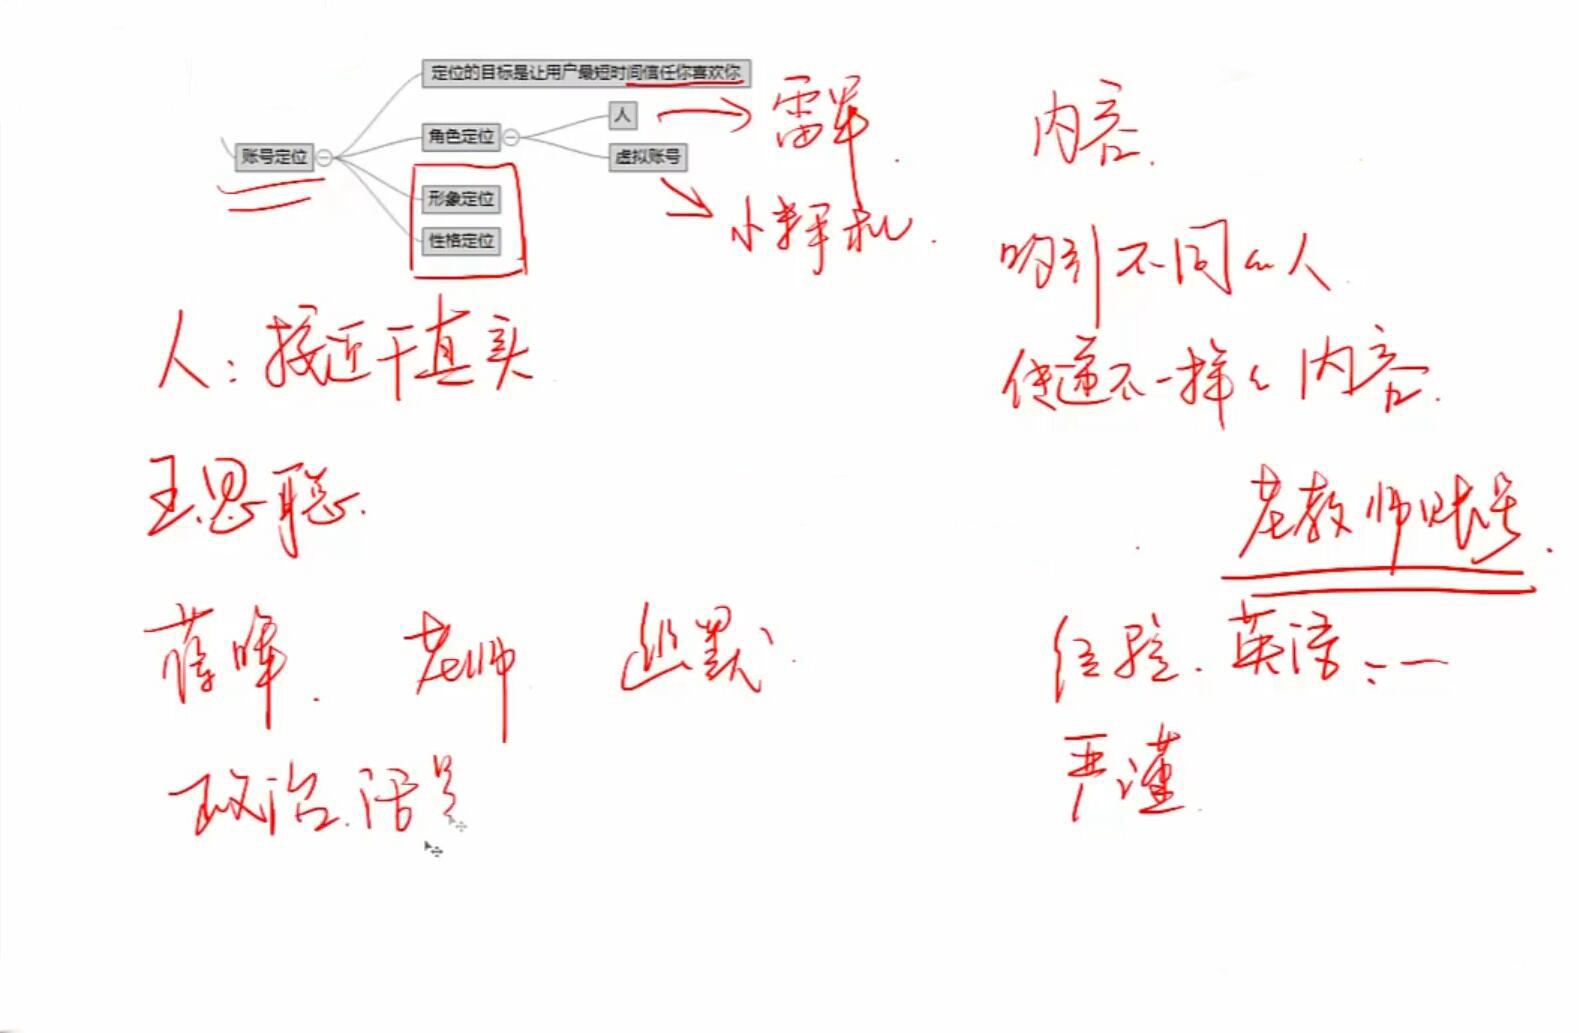 定位的目标是让用户最短时间信任你喜欢你
账号定位
角色定位
人
虚拟账号
形象定位
性格定位
雷军
内容.
吸引不同的人
人：接近于真实
传递不一样的内容.
王思聪.
老教师账号.
老师
幽默
经验.英语
严谨
政治.